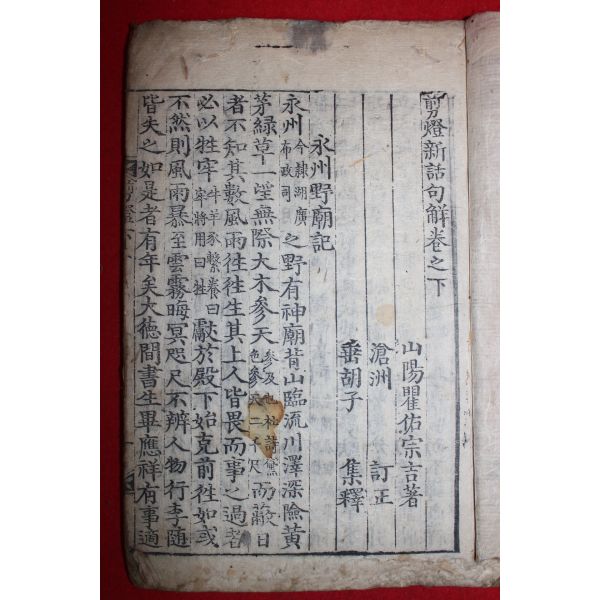 剪燈新話句解卷之下
山陽瞿佑宗吉著
滄洲 訂正
垂胡子 集釋
永州野廟記
永州今隸湖廣布政司之野有神廟背山臨流川澤深險黃
茅綠草一望無際大木參天參及也杜詩黛色參天二千尺而蔽日
者不知其數風雨徃徃生其上人皆畏而事之過者
必以牲牢牛羊豕繫養曰牢將用曰牲獻於殿下始克前徃如或
不然則風雨暴至雲霧晦冥咫尺不辨人物行李隨
皆失之如是者有年矣大德間書生畢應祥有事適